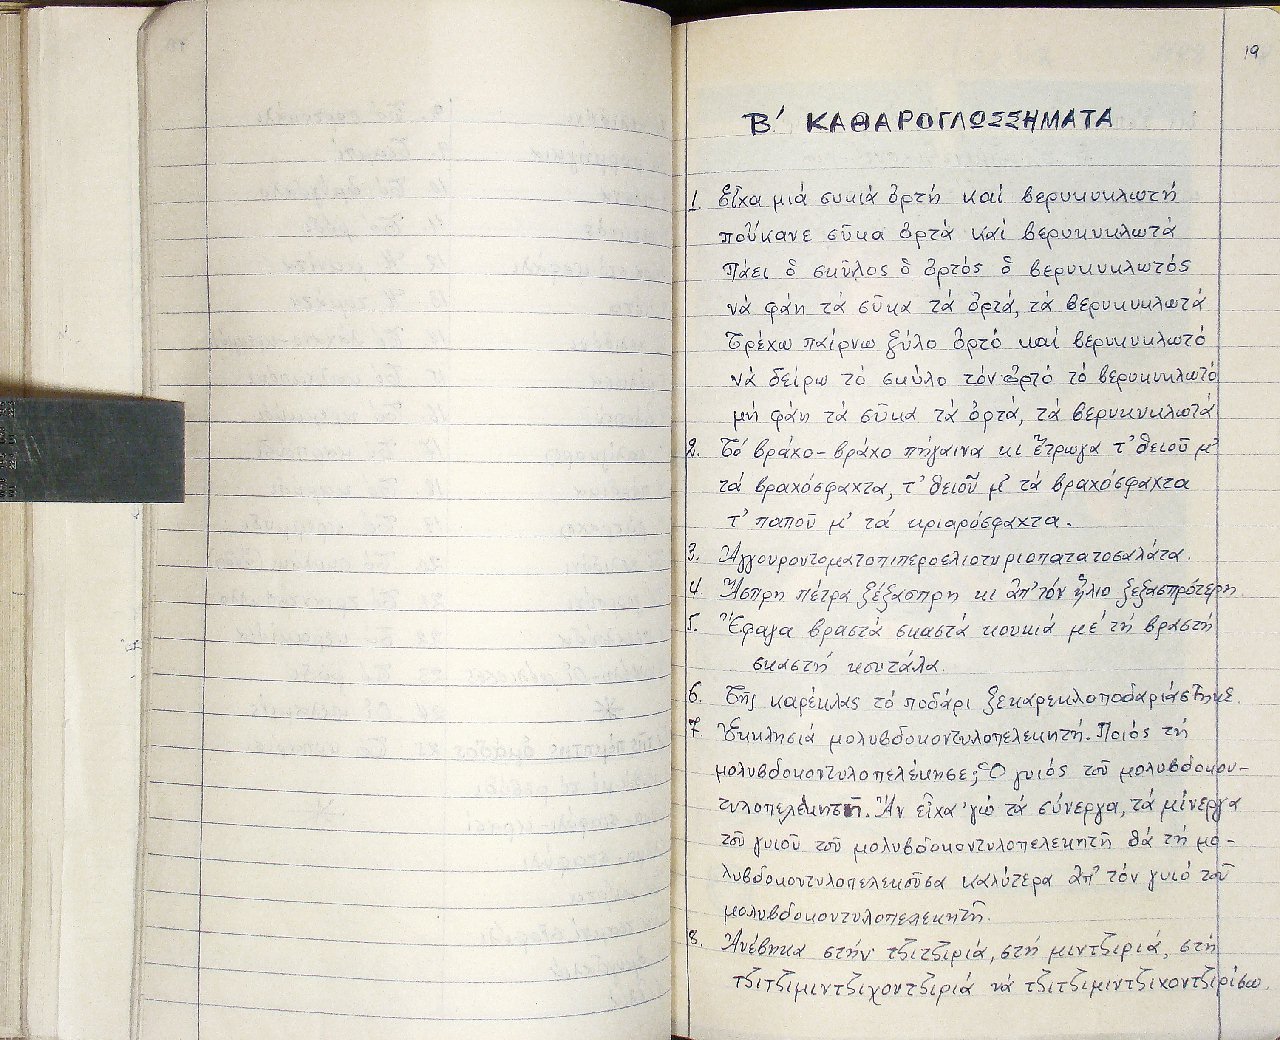 19
Β΄ ΚΑΘΑΡΟΓΛΩΣΣΗΜΑΤΑ
1. Εἶχα μιά συκιά ὀρτή καί βερυκυκλωτή
πού̓κανε σῦκα ὀρτά καί βερυκυκλωτά
Πάει ὁ σκῦλος ὁ ὀρτός ὁ βερυκυκλωτός
νά φάη τά σῦκα τά ὀρτά, τά βερυκυκλωτά
Τρέχω παίρνω ξύλο ὀρτό καί βερυκυκλωτό
νά δείρω τό σκύλο τόν ὀρτό τό βερυκυκλωτό
μή φάη τά σῦκα τά ὀρτά, τά βερυκυκλωτά
2. Τό βράχο-βράχο πήγαινα κι ἔτρωγα τ' θειοῦ μ'
τά βραχόσφαχτα, τ' θειοῦ μ' τά βραχόσφαχτα
τ' παποῦ μ' τά κριαρόσφαχτα.
3. Ἀγγουροντοματοπιπεροελιοτυριοπατατοσαλάτα.
4. Ἄσπρη πέτρα ξέξασπρη κι ἀπ' τόν ἥλιο ξεξασπρότερη.
5. Ἔφαγα βραστά σκαστά κουκιά μέ τή βραστή
σκαστή κουτάλα.
6. Τῆς καρέκλας τό ποδάρι ξεκαρεκλοποδαριάστηκε.
7. Ἐκκλησιά μολυβδοκοντυλοπελεκητή. Ποιός τή
μολυβδοκοντυλοπελέκησε; Ὁ γυιός τοῦ μολυβδοκον-
τυλοπελεκητῆ. Ἄν εἶχα 'γώ τά σύνεργα, τά μίνεργα
τοῦ γυιοῦ τοῦ μολυβδοκοντυλοπελεκητῆ θά τή μο-
λυβδοκοντυλοπελεκοῦσα καλύτερα ἀπ' τόν γυιό τοῦ
μολυβδοκοντυλοπελεκητῆ.
8. Ἀνέβηκα στήν τζιτζιριά, στή μιντζιριά, στή
τζιτζιμιντζιχοντζιριά νά τζιτζιμιντζιχοντζιρίσω.